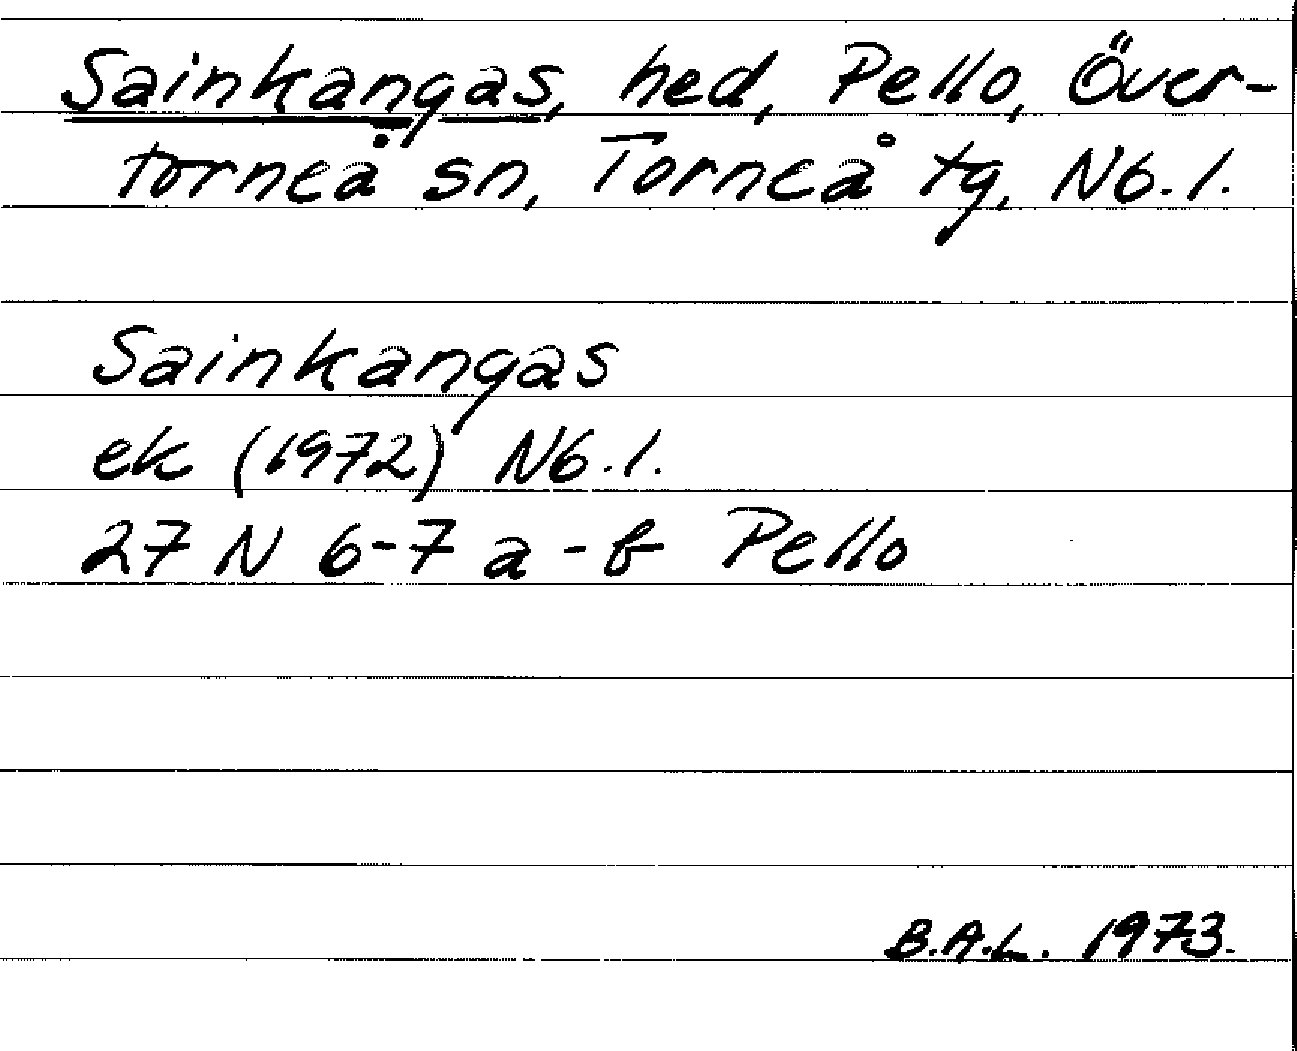 Sainkangas, hed, Pello, Över-
torneå sn, Torneå tg, N6.1.
Sainkangas
ek (1972) N6.1.
27 N 6-7 a - b Pello
B.A.L. 1973.